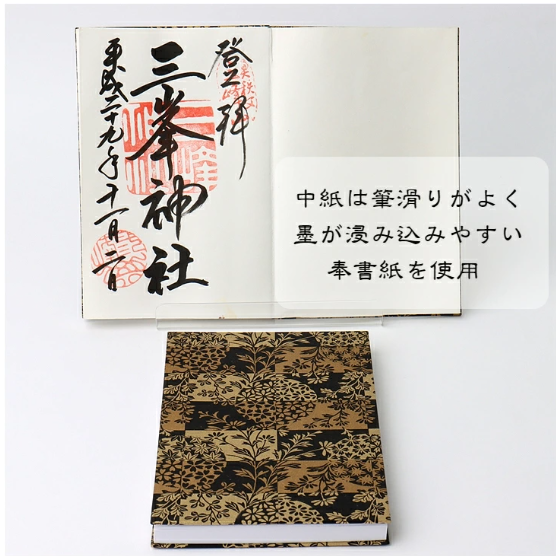 登拝
三峯神社
平成二十九年十一月二日
中紙は筆滑りがよく
墨が浸み込みやすい
奉書紙を使用